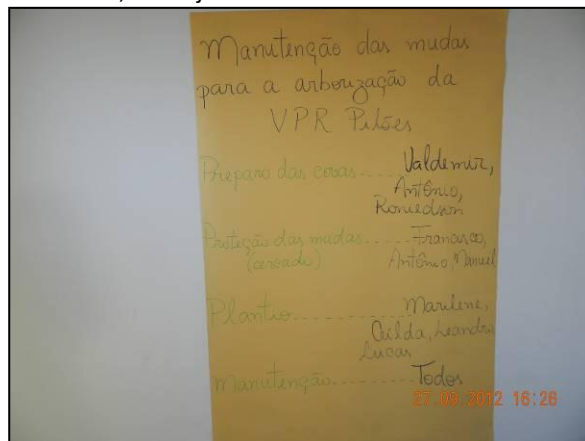 Manutenção das mudas
para a arborização da
VPR Pilões
Preparo das covas---- Valdemir,
Antônio,
Roniedson
Proteção das mudas..... Francisco,
(cercado) Antônio, Manuel
Plantio........... Marilene,
Leandro,
Lucas
Manutenção......... Todos
27.09.2012 16:26